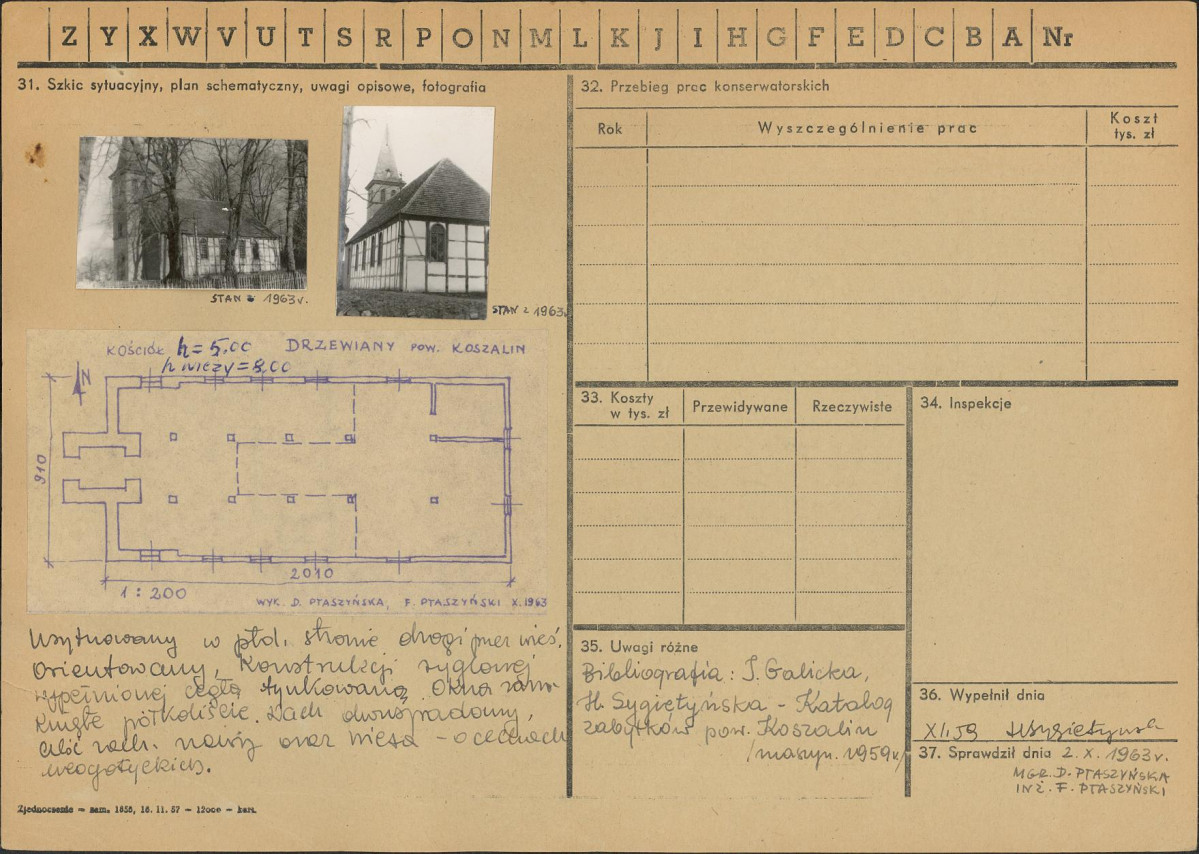 Z Y X W V U T S R P O N M L K J I H G F E D C B A Nr
31. Szkic sytuacyjny, plan schematyczny, uwagi opisowe, fotografia
STAN z 1963 r.
STAN z 1963
KOŚCIÓŁ h = 5.00 DRZEWIANY POW. KOSZALIN
h wieży = 8.00
N
910
2010
1 : 200
WYK. D. PTASZYŃSKA, F. PTASZYŃSKI X.1963
Usytuowany w płd. stronie drogi przez wieś,
orientowany, konstrukcji ryglowej
wypełnionej cegłą tynkowaną. Okna zam-
knięte półkoliście. Dach dwuspadowy,
część zach. nawy oraz wieża - o cechach
neogotyckich.
Zjednoczenie — zam. 1855, 16. 11. 57 — 12000 — kart.
32. Przebieg prac konserwatorskich
Rok Wyszczególnienie prac Koszt tys. zł
33. Koszty w tys. zł Przewidywane Rzeczywiste
34. Inspekcje
35. Uwagi różne
Bibliografia: I. Galicka,
H. Sygietyńska - Katalog
zabytków pow. Koszalin
/maszyn. 1959 r/
36. Wypełnił dnia
XI.59 HSygietyńska
37. Sprawdził dnia 2. X. 1963 r.
MGR. D. PTASZYŃSKA
INŻ. F. PTASZYŃSKI